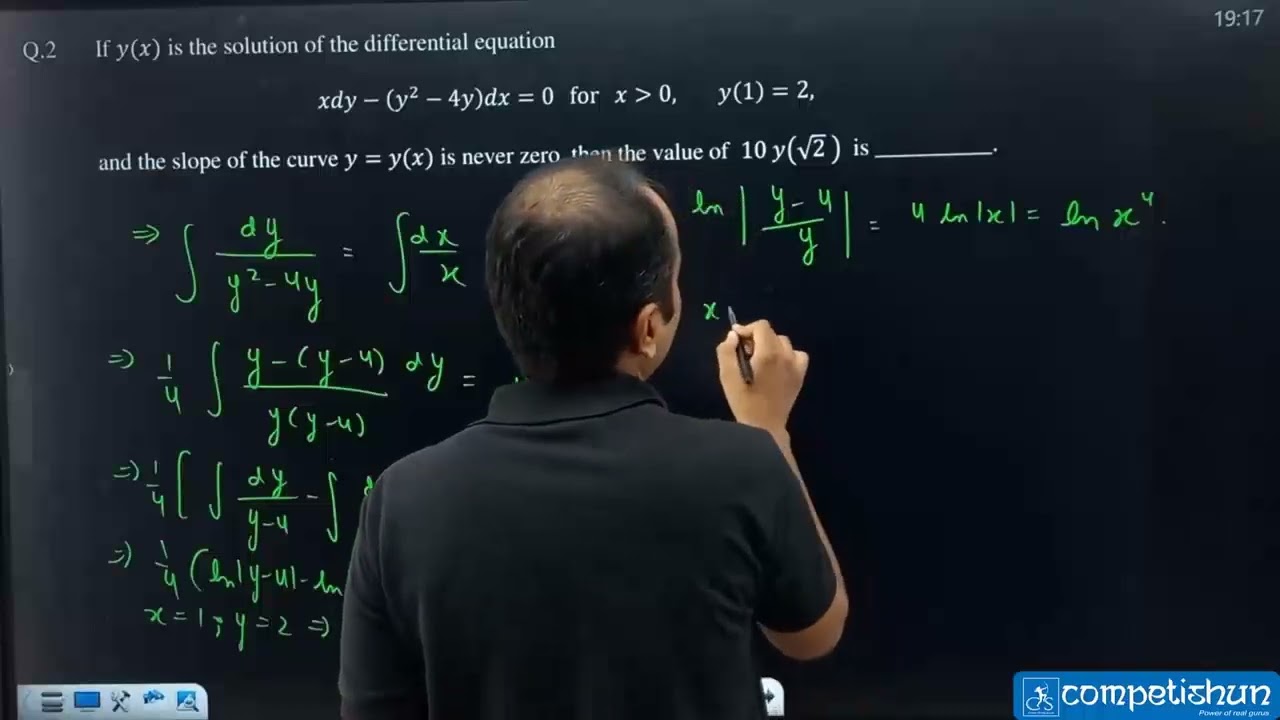 19:17
Q.2 If y(x) is the solution of the differential equation
xdy − (y² − 4y)dx = 0 for x > 0, y(1) = 2,
and the slope of the curve y = y(x) is never zero, then the value of 10 y(√2) is ________.
⇒ ∫ dy / (y² − 4y) = ∫ dx / x
⇒ 1/4 ∫ (y − (y − 4)) / (y(y − 4)) dy =
⇒ 1/4 [ ∫ dy / (y − 4) − ∫
⇒ 1/4 (ln|y − 4| − ln
x = 1 ; y = 2 ⇒
ln | (y − 4) / y | = 4 ln|x| = ln x⁴.
x
competishun
Power of real gurus